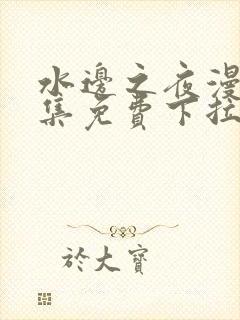 水邊之夜漫
集免費下拉
於大寶